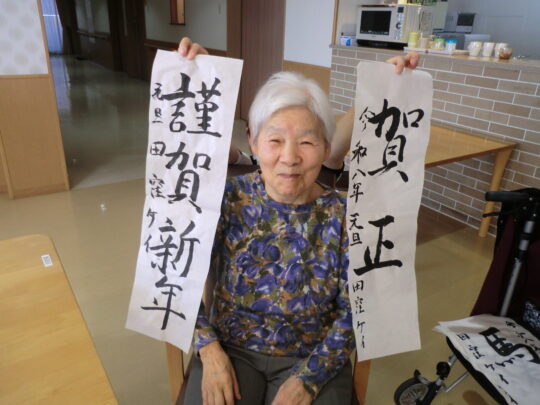 謹賀新年
元旦 田窪ケイ
賀正
令和八年 元旦 田窪ケイ
馬
田窪ケイ